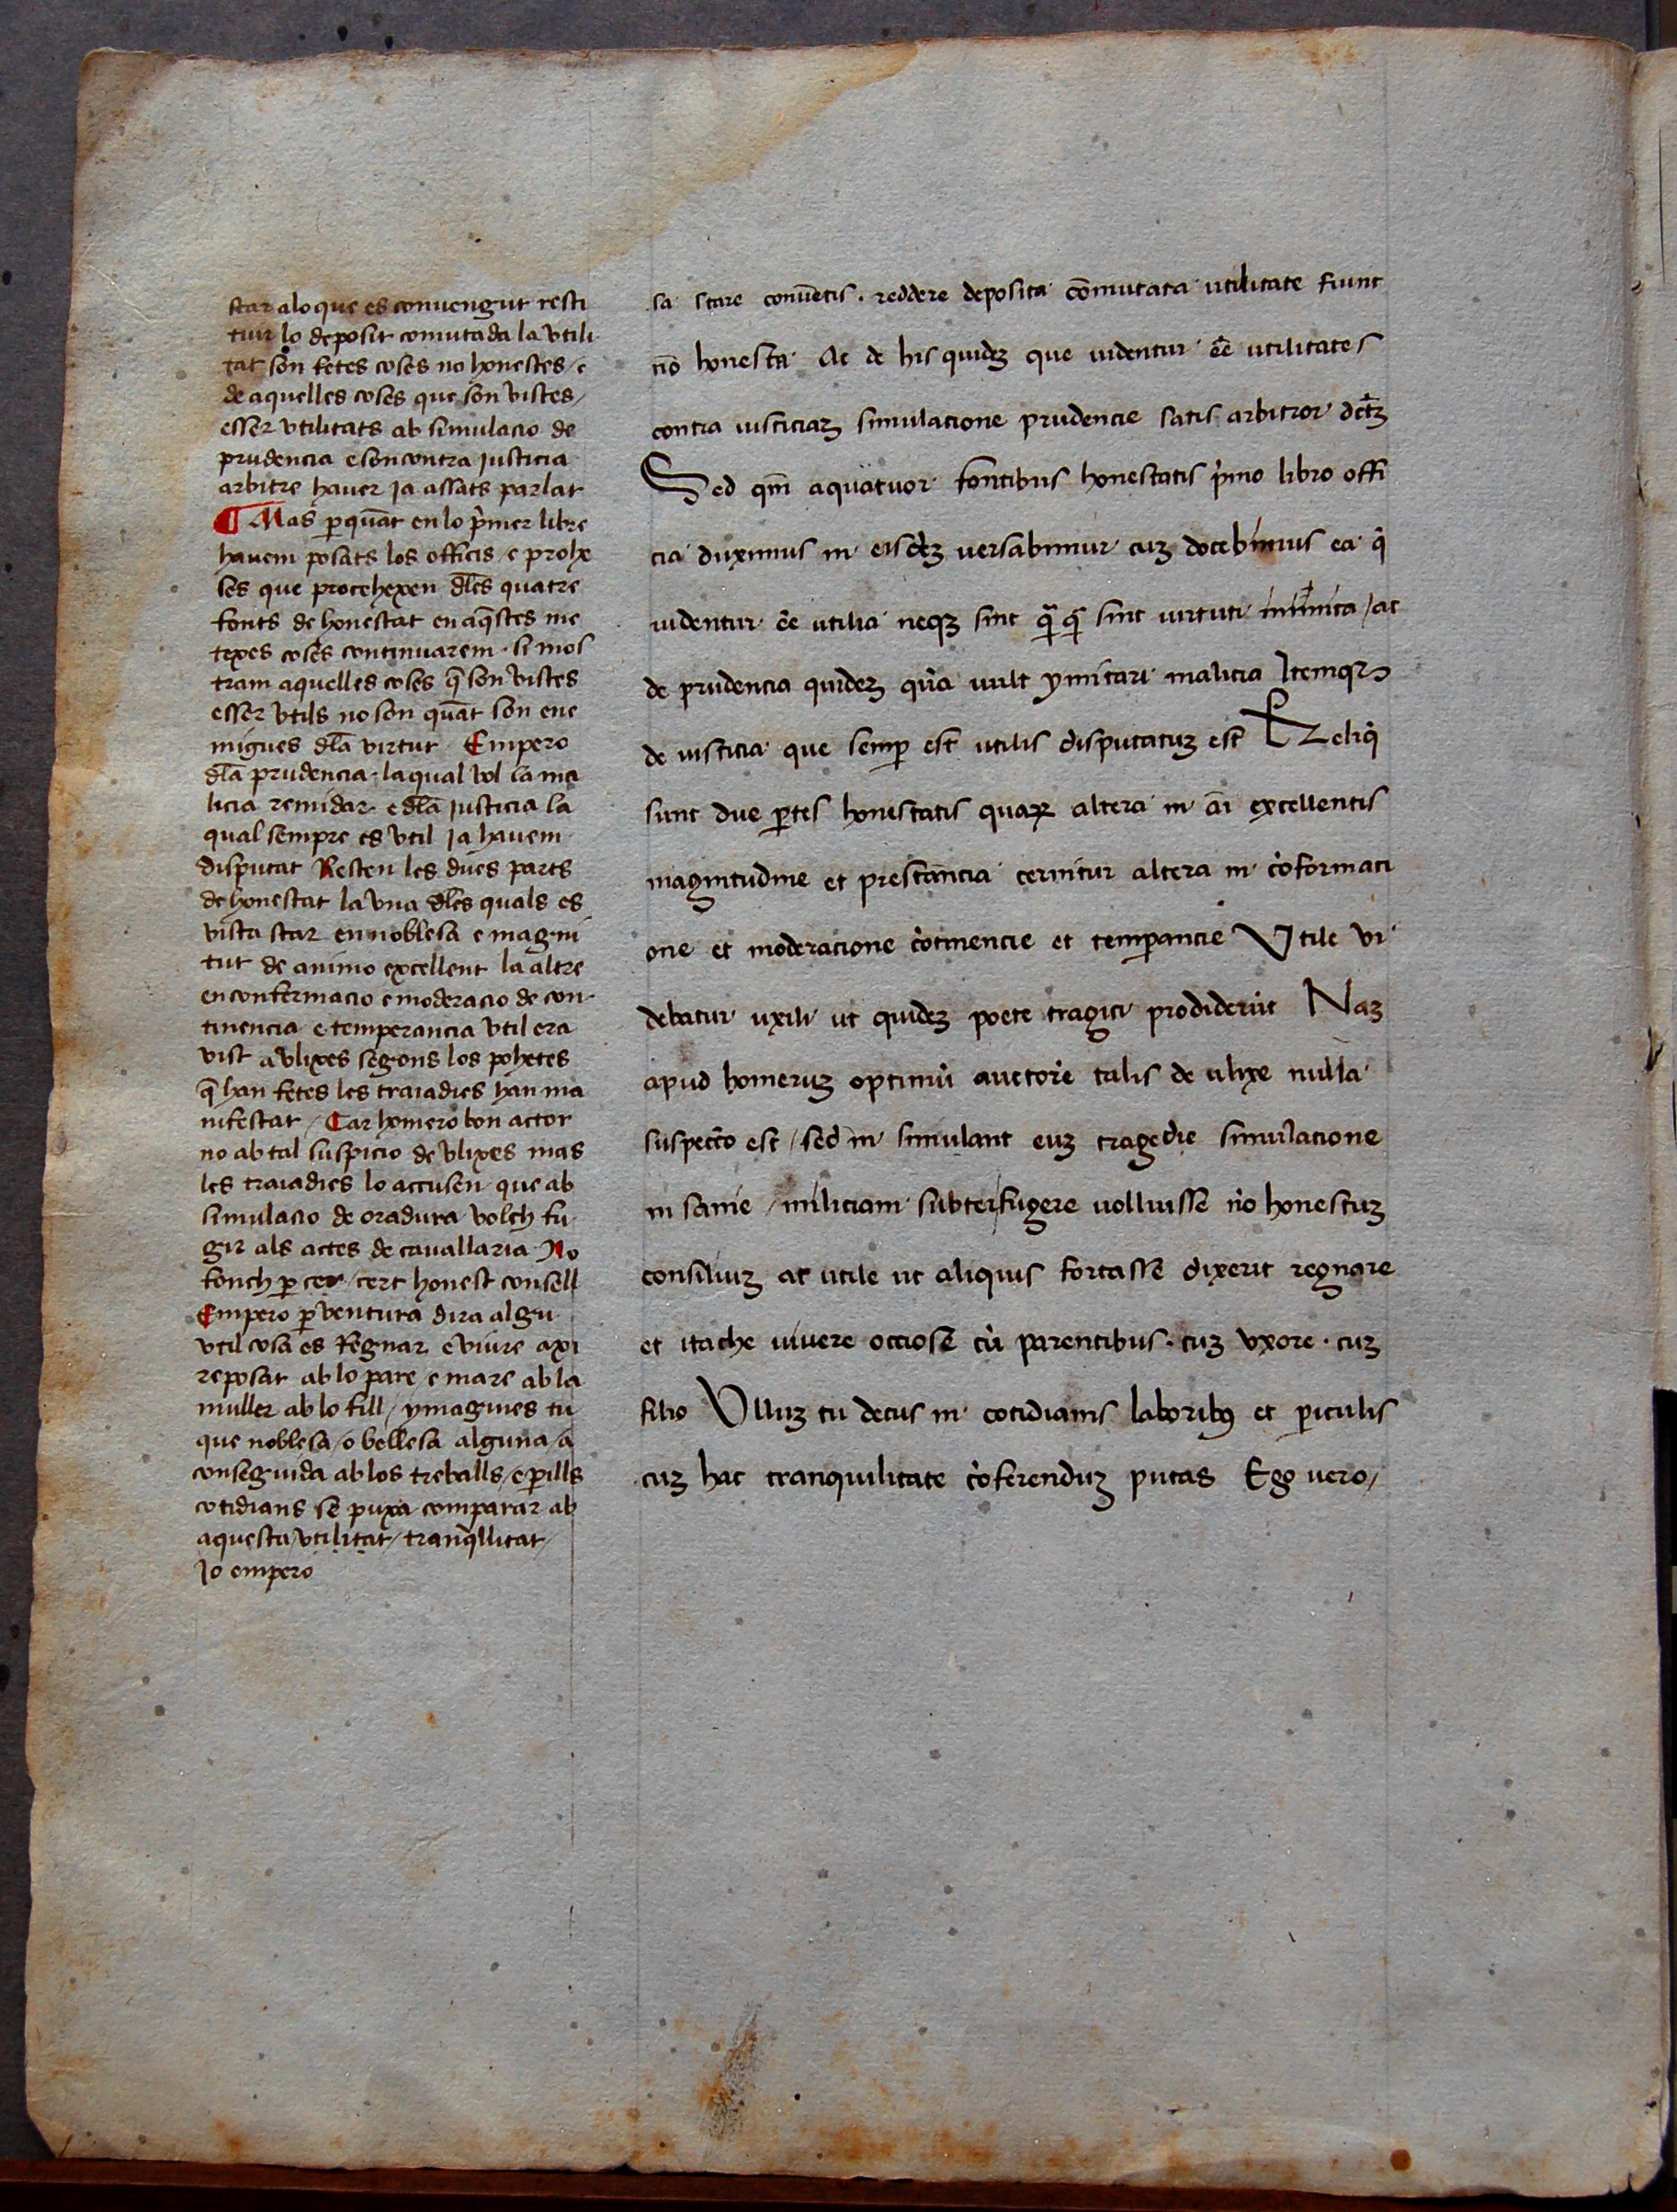 star alo que es convengut resti
tuir lo deposit comutada la vtili
tat son fetes coses no honestes / e
de aquelles coses que son vistes /
esser vtilitats ab simulacio de
prudencia e son contra justicia
arbitre haver ja assats parlat
¶ Mas ꝑ quãt en lo p̃mer libre
havem posats los officis / e prohe
ses que procehexen dl̃es quatre
fonts de honestat en aq̃stes me
texes coses continuarem · si mos
tram aquelles coses q̃ son vistes
esser vtils no son quãt son ene
migues dl̃a virtut · Empero
dl̃a prudencia · la qual vol la ma
licia remidar · e dl̃a justicia la
qual sempre es vtil ja havem
disputat Resten les dues parts
de honestat la vna dl̃es quals es
vista star en noblesa e magni
tut de animo excellent la altre
en confermacio e moderacio de con
tinencia e temperancia vtil era
vist a vlixes segons los pohetes
q̃ han fetes les traiadies han ma
nifestat / Car homero bon actor
no ab tal suspicio de vlixes mas
les traiadies lo accusen que ab
simulacio de oradura volch fu
gir als actes de cavallaria No
fonch ꝑ cer / cert honest consell
Empero ꝑ ventura dira algu
vtil cosa es Regnar e viure axi
reposat ab lo pare / e mare ab la
muller ab lo fill / ymagines tu
que noblesa / o bellesa alguna / a
conseguida ab los treballs / e ꝑills
cotidians se puxa comparar ab
aquesta / vtilitat / tranq̃llitat /
Jo empero
sa stare conuẽtis . reddere deposita cõmutata utilitate fiunt
nõ honesta Ac de his quidez que uidentur eẽ utilitates
contra iusticiaz simulacione prudencie satis arbitror dc̃tz
Sed qm̃ aquatuor fontibus honestatis p̃mo libro offi
cia duximus in eisdez uersabimur cuz docebimus ea q̃
uidentur eẽ utilia neqz sint q̃ q̃ sint uirtuti inimica / ac
de prudencia quidez quã uult ymitari malicia Itemqz
de iusticia que semꝑ est utilis disputatuz est Reliq̃
sunt due ꝑtes honestatis quaꝝ altera in ãi excellentis
magnitudine et prestancia cernitur altera in cõformaci
one et moderacione cõtinencie et temperancie Vtile vi
debatur uxili ut quidez poete tragici prodiderũt Naz
apud homeruz optimũ auctorẽ talis de ulixe nulla
suspecto est / sed in simulant euz tragedie simulacione
in sanie / miliciam subterfugere uolluisse nõ honestuz
consiliuz at utile ut aliquis fortasse dixerit regnare
et itache uiuere occiose cũ parentibus . cuz vxore . cuz
filio Vlluz tu decus in cotidianis laboribꝯ et ꝑiculis
cuz hac tranquilitate cõferenduz putas Ego uero /